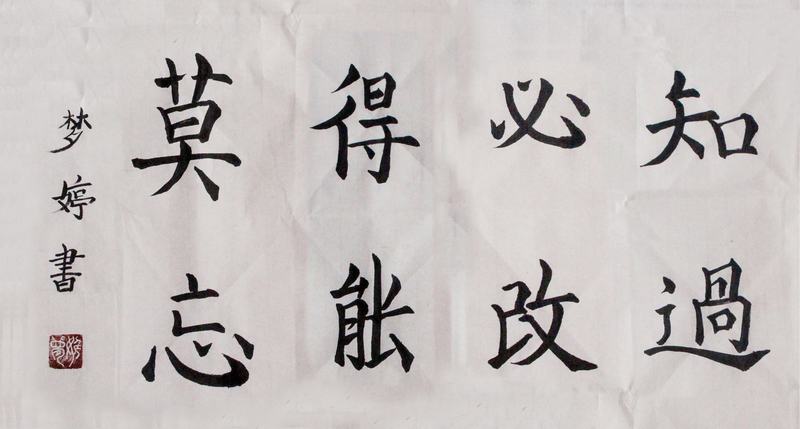 知過
必改
得能
莫忘
梦婷書